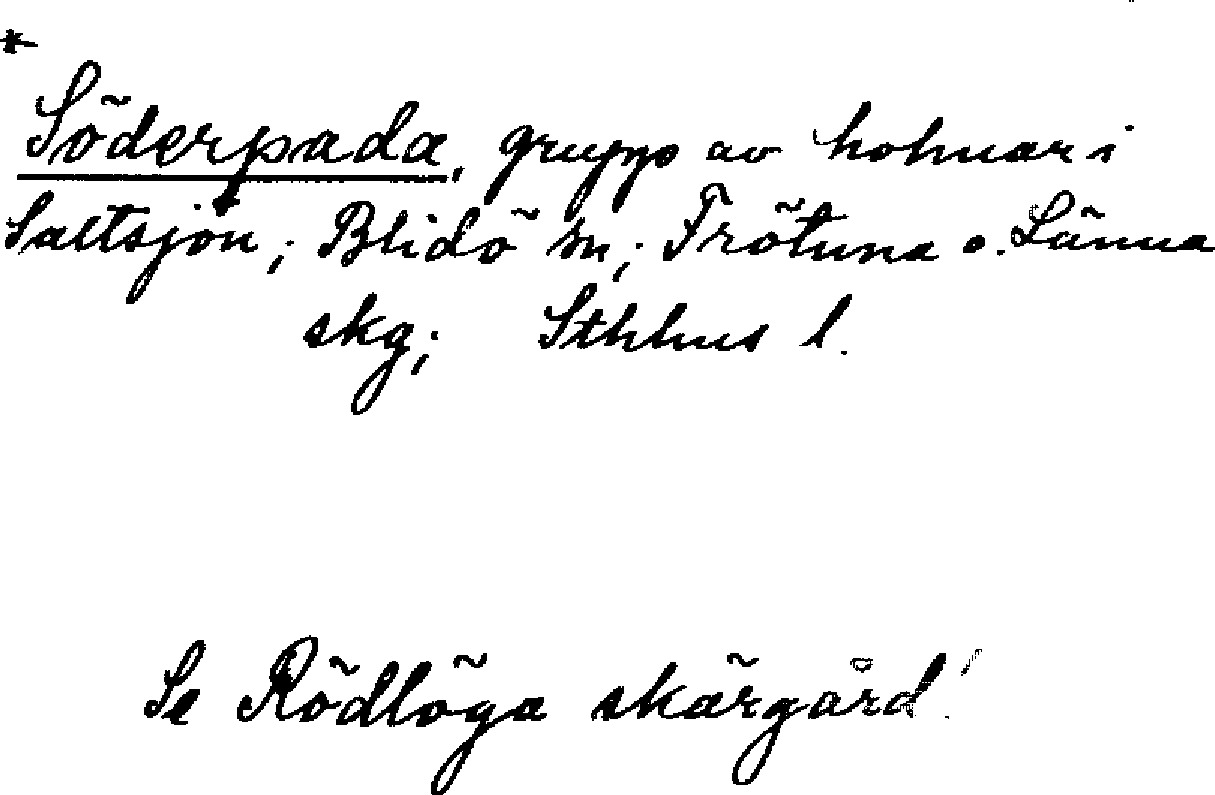 *
Söderpada, grupp av holmar i
Saltsjön; Blidö sn; Frötuna o. Länna
skg; Sthlms l.
Se Rödlöga skärgård!